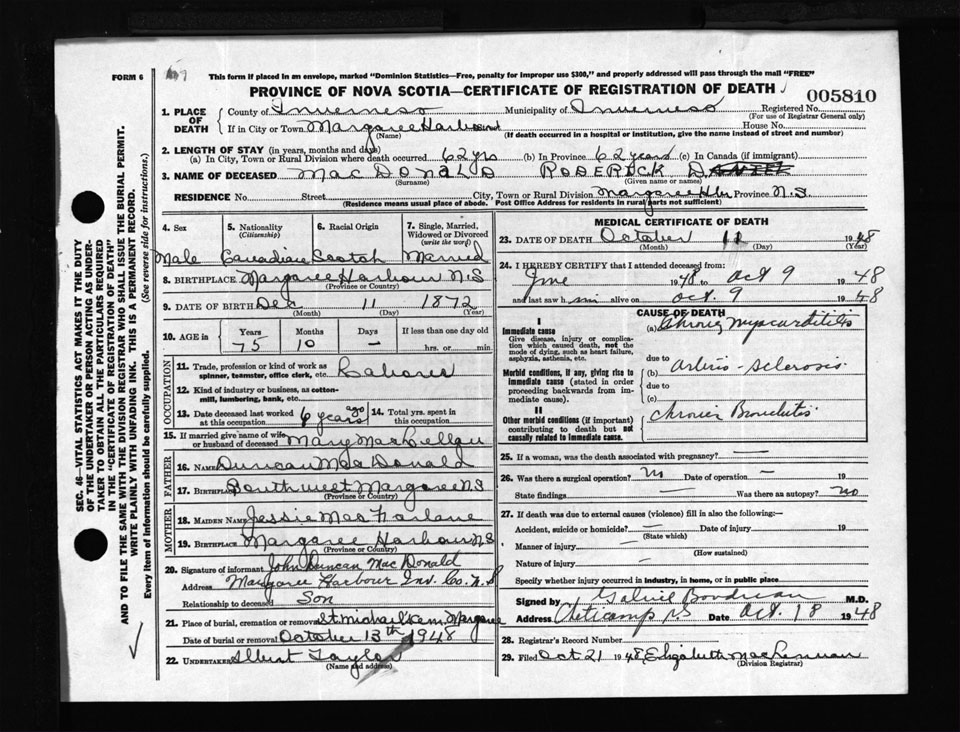 FORM 6
This form if placed in an envelope, marked "Dominion Statistics—Free, penalty for improper use $300," and properly addressed will pass through the mail "FREE"
PROVINCE OF NOVA SCOTIA—CERTIFICATE OF REGISTRATION OF DEATH
005810
1. PLACE OF DEATH County of Inverness Municipality of Inverness Registered No.
(For use of Registrar General only)
If in City or Town Margaree Harbour House No.
(Name) (If death occurred in a hospital or institution, give the name instead of street and number)
2. LENGTH OF STAY (in years, months and days)
(a) In City, Town or Rural Division where death occurred 62 yrs (b) In Province 62 years (c) In Canada (if immigrant)
3. NAME OF DECEASED MacDonald Roderick D.
(Surname) (Given name or names)
RESIDENCE No. Street City, Town or Rural Division Margaree Hbr Province N.S.
(Residence means usual place of abode. Post Office Address for residents in rural parts not sufficient)
4. Sex Male
5. Nationality (Citizenship) Canadian
6. Racial Origin Scotch
7. Single, Married, Widowed or Divorced (write the word) Married
8. BIRTHPLACE Margaree Harbour N.S
(Province or Country)
9. DATE OF BIRTH Dec 11 1872
(Month) (Day) (Year)
10. AGE in Years 75 Months 10 Days - If less than one day old hrs. or min.
OCCUPATION
11. Trade, profession or kind of work as spinner, teamster, office clerk, etc. Laborer
12. Kind of industry or business, as cotton-mill, lumbering, bank, etc.
13. Date deceased last worked at this occupation 6 years ago 14. Total yrs. spent in this occupation
15. If married give name of wife or husband of deceased Mary MacLellan
FATHER
16. NAME Duncan MacDonald
17. BIRTHPLACE Southwest Margaree N.S
(Province or Country)
MOTHER
18. MAIDEN NAME Jessie MacFarlane
19. BIRTHPLACE Margaree Harbour N.S
(Province or Country)
20. Signature of informant John Duncan MacDonald
Address Margaree Harbour Inv. Co. N.S
Relationship to deceased Son
21. Place of burial, cremation or removal St Michael's Cem. Margaree
Date of burial or removal October 13th 1948
22. UNDERTAKER Albert Taylor
(Name and address)
MEDICAL CERTIFICATE OF DEATH
23. DATE OF DEATH October 11 1948
(Month) (Day) (Year)
24. I HEREBY CERTIFY that I attended deceased from:
June 1948 to Oct 9 1948
and last saw him alive on Oct. 9 1948
CAUSE OF DEATH
I
Immediate cause
Give disease, injury or complication which caused death, not the mode of dying, such as heart failure, asphyxia, asthenia, etc.
(a) Chronic myocarditis
due to
Morbid conditions, if any, giving rise to immediate cause (stated in order proceeding backwards from immediate cause).
(b) Arterio-sclerosis
due to
(c)
II
Other morbid conditions (if important) contributing to death but not causally related to immediate cause.
Chronic Bronchitis
25. If a woman, was the death associated with pregnancy? —
26. Was there a surgical operation? No Date of operation — 19
State findings — Was there an autopsy? No
27. If death was due to external causes (violence) fill in also the following:—
Accident, suicide or homicide? — Date of injury 19
(State which)
Manner of injury —
(How sustained)
Nature of injury —
Specify whether injury occurred in industry, in home, or in public place
Signed by Gabriel Boudreau M.D.
Address Cheticamp N.S. Date Oct. 18 1948
28. Registrar's Record Number
29. Filed Oct 21 1948 Elizabeth MacLennan
(Division Registrar)
SEC. 46—VITAL STATISTICS ACT MAKES IT THE DUTY
OF THE UNDERTAKER OR PERSON ACTING AS UNDER-
TAKER TO OBTAIN ALL THE PARTICULARS REQUIRED
IN THE "CERTIFICATE OF REGISTRATION OF DEATH"
AND TO FILE THE SAME WITH THE DIVISION REGISTRAR WHO SHALL ISSUE THE BURIAL PERMIT.
WRITE PLAINLY WITH UNFADING INK. THIS IS A PERMANENT RECORD.
Every item of information should be carefully supplied. (See reverse side for instructions.)